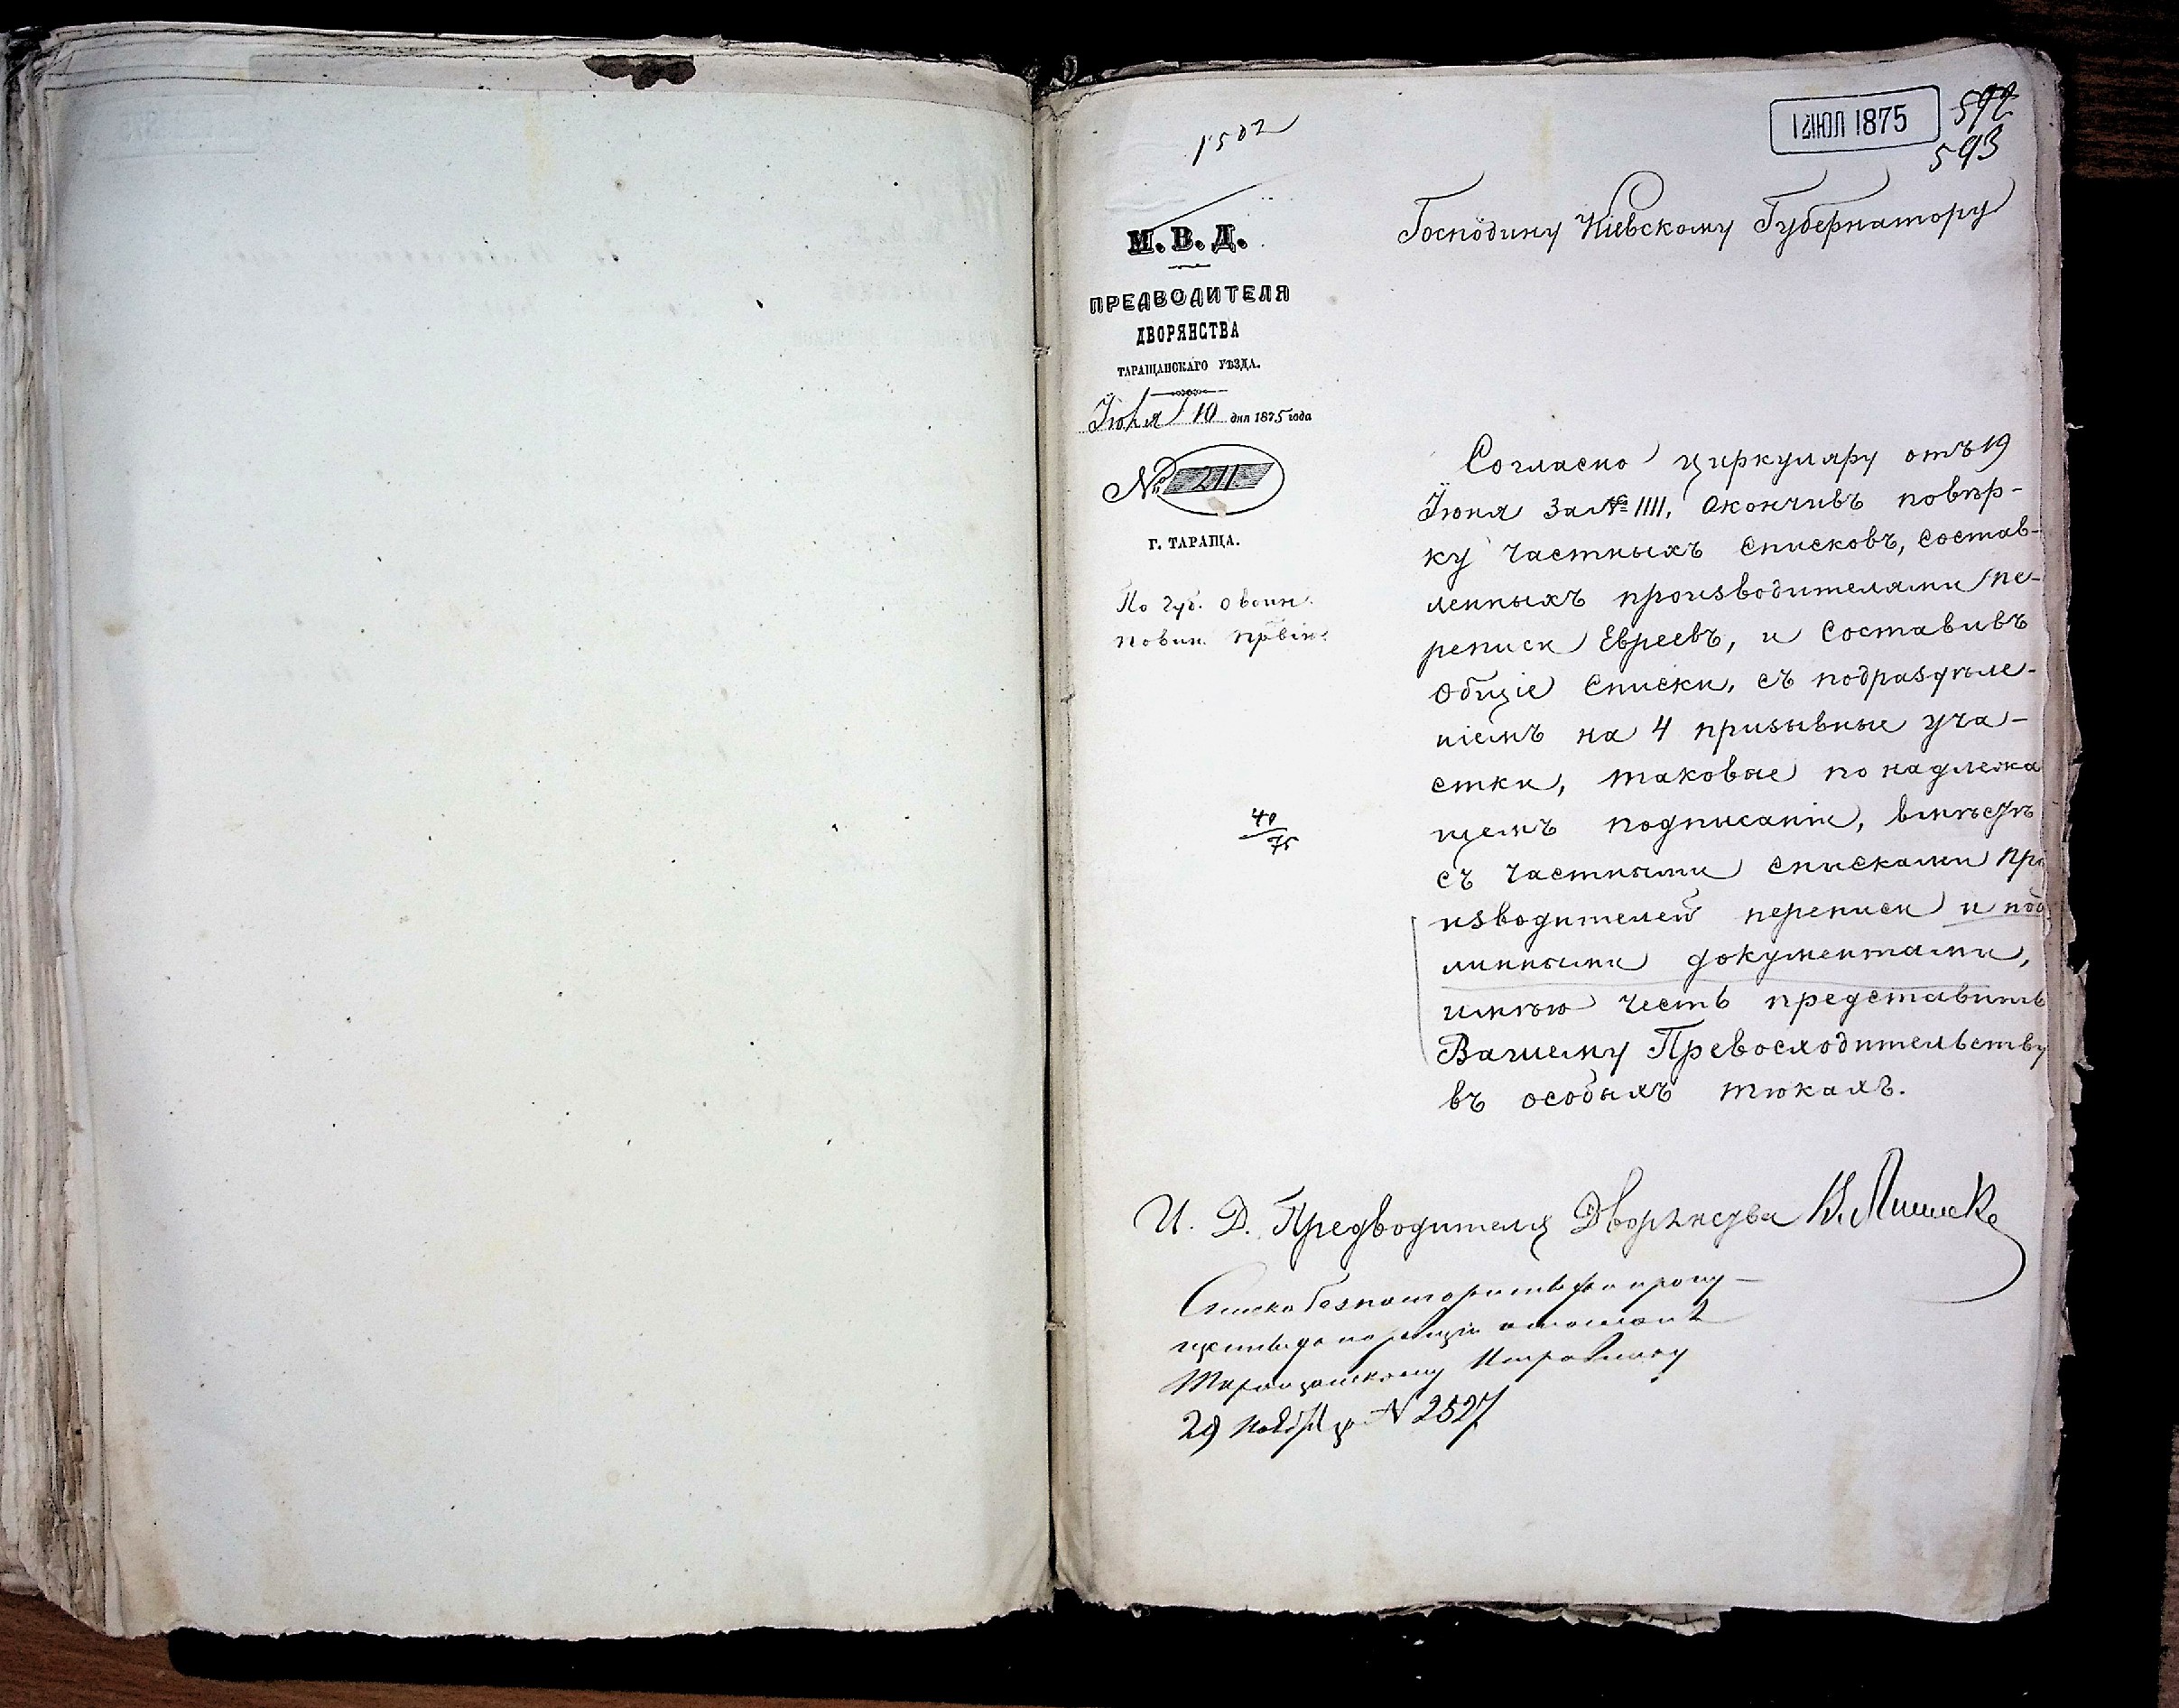 1502
12 ІЮЛ 1875
592
593
М. В. Д.
ПРЕДВОДИТЕЛЯ
ДВОРЯНСТВА
ТАРАЩАНСКАГО УѢЗДА.
Іюля 10 дня 1875 года
№ 211.
Г. ТАРАЩА.
По Губ. о воин.
повин. првін.
40/75
Господину Кіевскому Губернатору
Согласно циркуляру отъ 19
Іюня за № 1111, окончивъ повѣр-
ку частныхъ списковъ, состав-
ленныхъ производителями пе-
реписи Евреевъ, и составивъ
общіе списки, съ подраздѣле-
ніемъ на 4 призывные уча-
стки, таковые по надлежа
щемъ подписаніи, вмѣстѣ
съ частными списками про
изводителей переписи и под
линными документами,
имѣю честь представить
Вашему Превосходительству
въ особыхъ тюкахъ.
И. Д. Предводителя Дворянства
Таращанскому Исправнику
29 Ноября № 2527